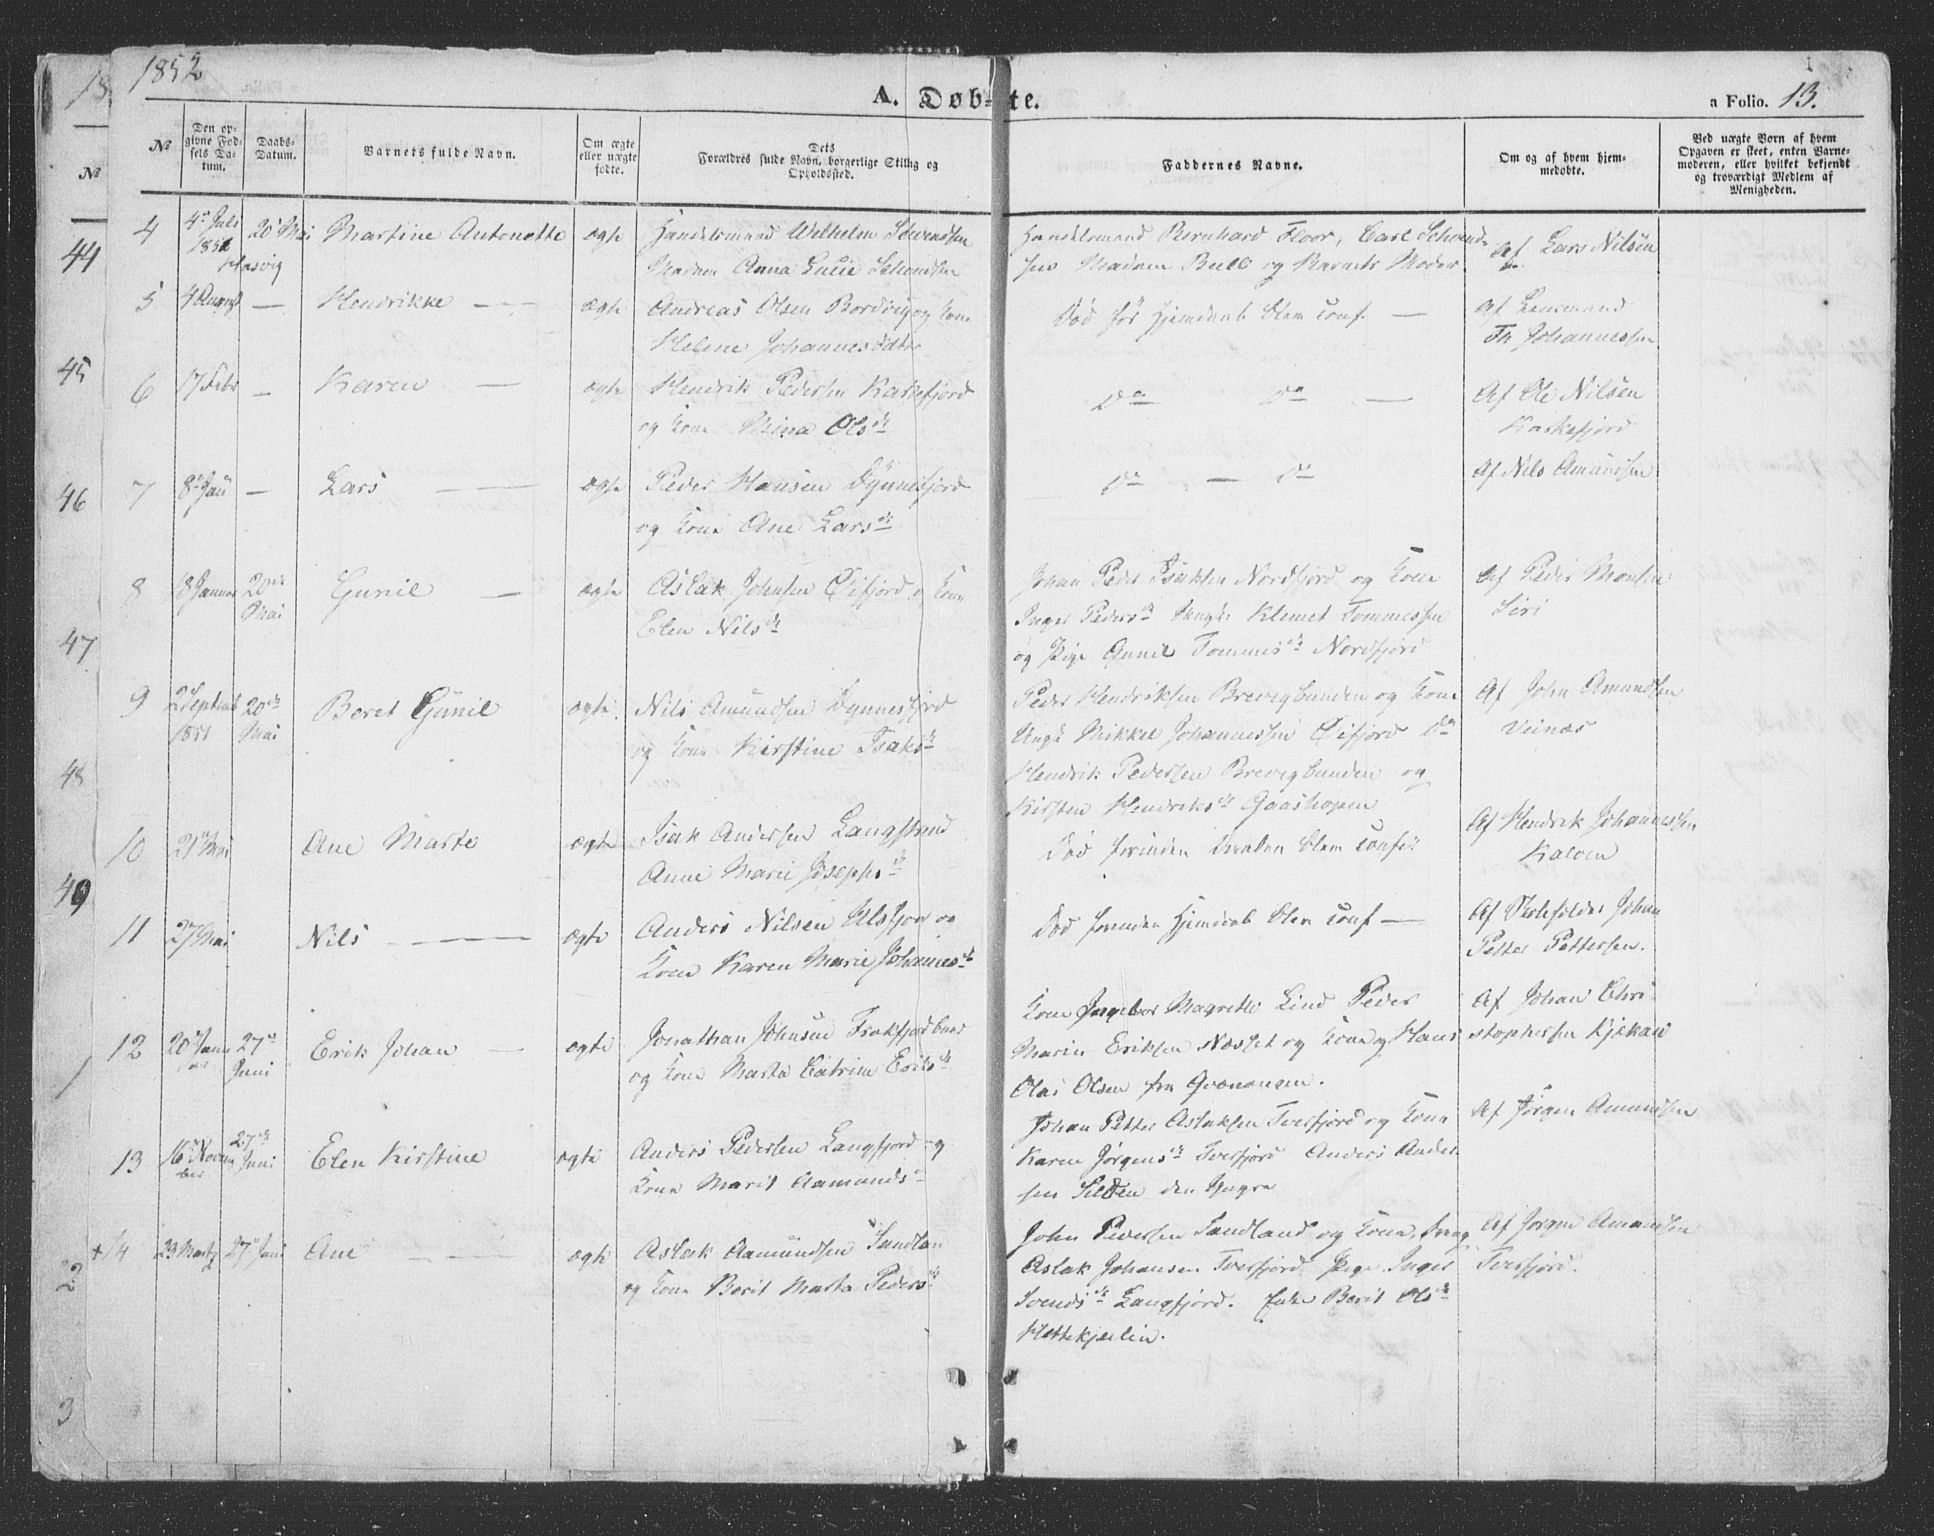 1852
A. Døb-te.
a Folio. 13.
№
Den op-
givne Fød-
sels Da-
tum.
Daabs-
Datum.
Barnets fulde Navn.
Om ægte
eller uægte
fødte.
Dets
Forældres fulde Navn, borgerlige Stillig og
Opholdssted.
Faddernes Navne.
Om og af hvem hjem-
medøbte.
Ved uægte Børn af hvem
Opgaven er skeet, enten Barne-
moderen, eller hvilket bekjendt
og troværdigt Medlem af
Menigheden.
№
44
45
46
47
48
49
2
3
4 4de Juli 20 Mai Martine Antonette ægte Handelsmand Wilhelm
Hasvig
Madam Anna Lucie
Handelsmand Bernhard Floor, Carl
sen Madam Bull og Barnets Moder
Af Lars Nilsen
5 4 August — Hendrikke — ægte Andreas Olsen og Kone
Helene Johannesdatter
Død før Hjemdaab blev conf. —
Af Lensmand
Th. Johannessen
6 17 Febr — Karen — ægte Hendrik Pedersen Kaskefjord
og Kone Mina Olsdt
Do Do —
Af Ole Nilsen
Kaskefjord
7 8 Jan — Lars — ægte Peder Hansen Dynnesfjord
og Kone Ane Larsdt
Do — Do
Af Nils Amundsen
8 18 Januar 20de Mai Gunil — ægte Aslak Johnsen Øifjord og Kone
Elen Nilsdt
Johan Peder Isaksen Nordfjord og Kone
Inger Pedersdt Ungk: Klemet Tommessen
og Pige Gunil Tommesdt Nordfjord
Af Peder Monsen
Siri
9 2 Septemb 1851 20de Mai Beret Gunil ægte Nils Amundsen Dynnesfjord
og Kone Kirstine Isaksdt
Peder Hendriksen Brevigbunden og Kone
Ungk Mikkel Johannessen Øifjord Do
Hendrik Pedersen Brevigbunden og
Kirsten Hendriksdt Gaashopen
Af John Amundsen
Veinæs
10 21 Mai Ane Marte ægte Isak Andersen Langstrand
Anne Marie Josephsdt
Død forinden Daaben blev conf:
Af Hendrik Johannessen
Kalven
11 27 Mai Nils — ægte Anders Nilsen Ulsfjor og
Kone Karen Marie Johannesdt
Død forinden Hjemdaab blev conf —
Af Skoleholder Johan
Petter Pettersen.
12 20 Janu 27de Juni Erik Johan — ægte Jonathan Johnsen Isakfjordbund
og Kone Marta Catrine Eriksdt
Kone Ingebor Magrethe Lind Peder
Marin Eriksen Næsset og Kone og Hans
Olai Olsen fra Qvænangen.
Af Johan Chri
stophersen Kjækan
13 16 Novem
ber 27de Juni Elen Kirstine ægte Anders Pedersen Langfjord og
Kone Marit Aamundsdt
Johan Petter Aslaksen Tverfjord og Kone
Karen Jørgensdt Tverfjord Anders Ander
sen Silden den Yngre
Af Jørgen Amundsen
+14 23 Marts 27de Juni Ane — ægte Aslak Aamundsen Sandlan
og Kone Berit Marta Pedersdt
John Pedersen Sandland og Kone, Dreng
Aslak Johansen Tverfjord Pige Inger
Svendsdt Langfjord. Enke Berit Olsdt
Hettekjeilen.
Af Jørgen Amundsen
Tverfjord.